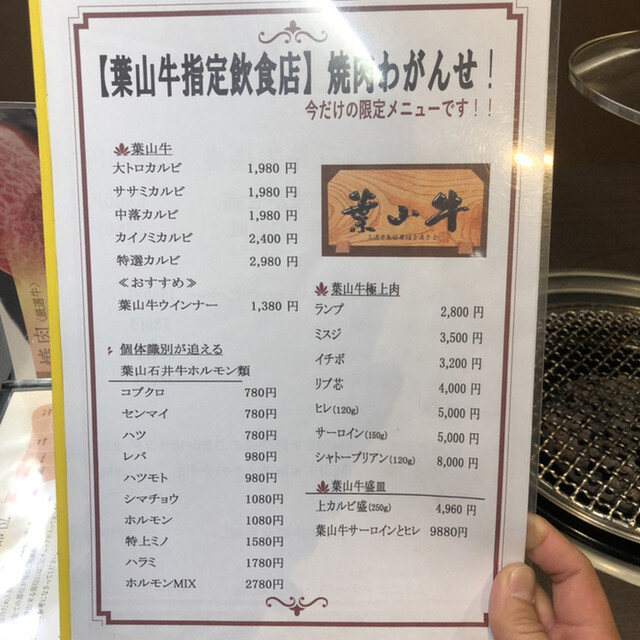 【葉山牛指定飲食店】焼肉わがんせ！
今だけの限定メニューです！！
葉山牛
大トロカルビ 1,980 円
ササミカルビ 1,980 円
中落カルビ 1,980 円
カイノミカルビ 2,400 円
特選カルビ 2,980 円
≪おすすめ≫
葉山牛ウインナー 1,380 円
個体識別が追える
葉山石井牛ホルモン類
コブクロ 780円
センマイ 780円
ハツ 780円
レバ 980円
ハツモト 980円
シマチョウ 1080円
ホルモン 1080円
特上ミノ 1580円
ハラミ 1780円
ホルモンMIX 2780円
葉山牛
葉山牛極上肉
ランプ 2,800 円
ミスジ 3,500 円
イチボ 3,200 円
リブ芯 4,000 円
ヒレ(120g) 5,000 円
サーロイン(150g) 5,000 円
シャトーブリアン(120g) 8,000 円
葉山牛盛皿
上カルビ盛(250g) 4,960 円
葉山牛サーロインとヒレ 9880円
焼肉(厳選牛)